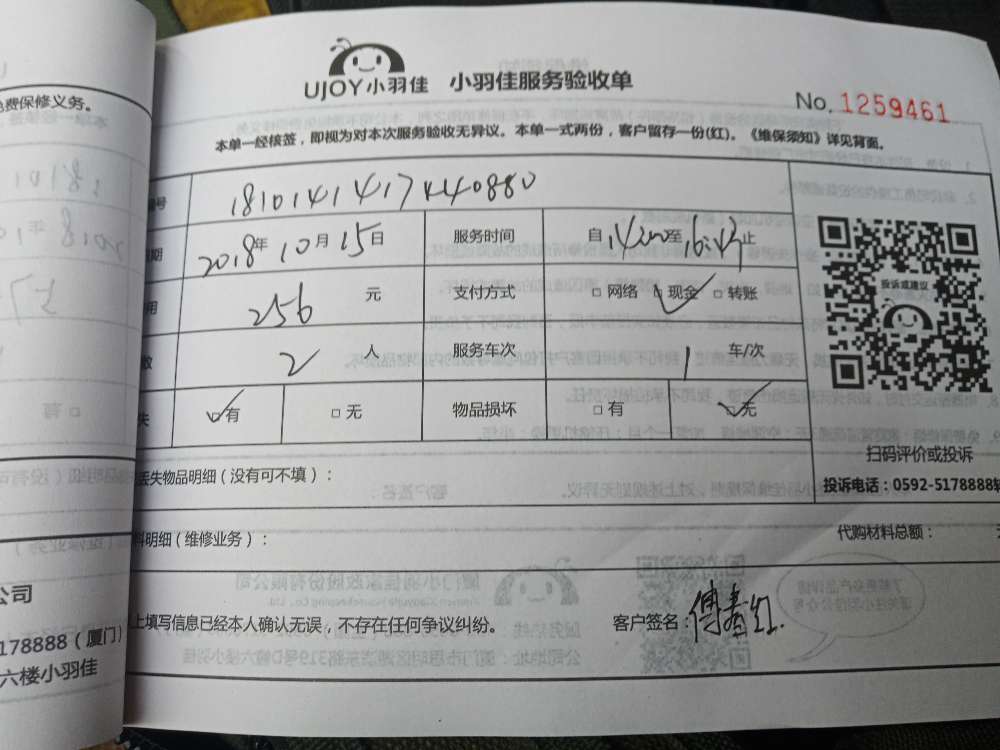 UJOY小羽佳 小羽佳服务验收单
No. 1259461
本单一经核签，即视为对本次服务验收无异议。本单一式两份，客户留存一份(红)。《维保须知》详见背面。
号 1810141417440880
期 2018年10月15日 服务时间 自 至16:43止
用 256元 支付方式 □ 网络 ☑ 现金 □ 转账
数 2人 服务车次 1车/次
失 ☑有 □ 无 物品损坏 □ 有 ☑无
投诉或建议
扫码评价或投诉
投诉电话：0592-5178888转
丢失物品明细（没有可不填）：
料明细（维修业务）： 代购材料总额：
上填写信息已经本人确认无误，不存在任何争议纠纷。 客户签名：傅春红
免费保修义务。
公司
5178888（厦门）
六楼小羽佳